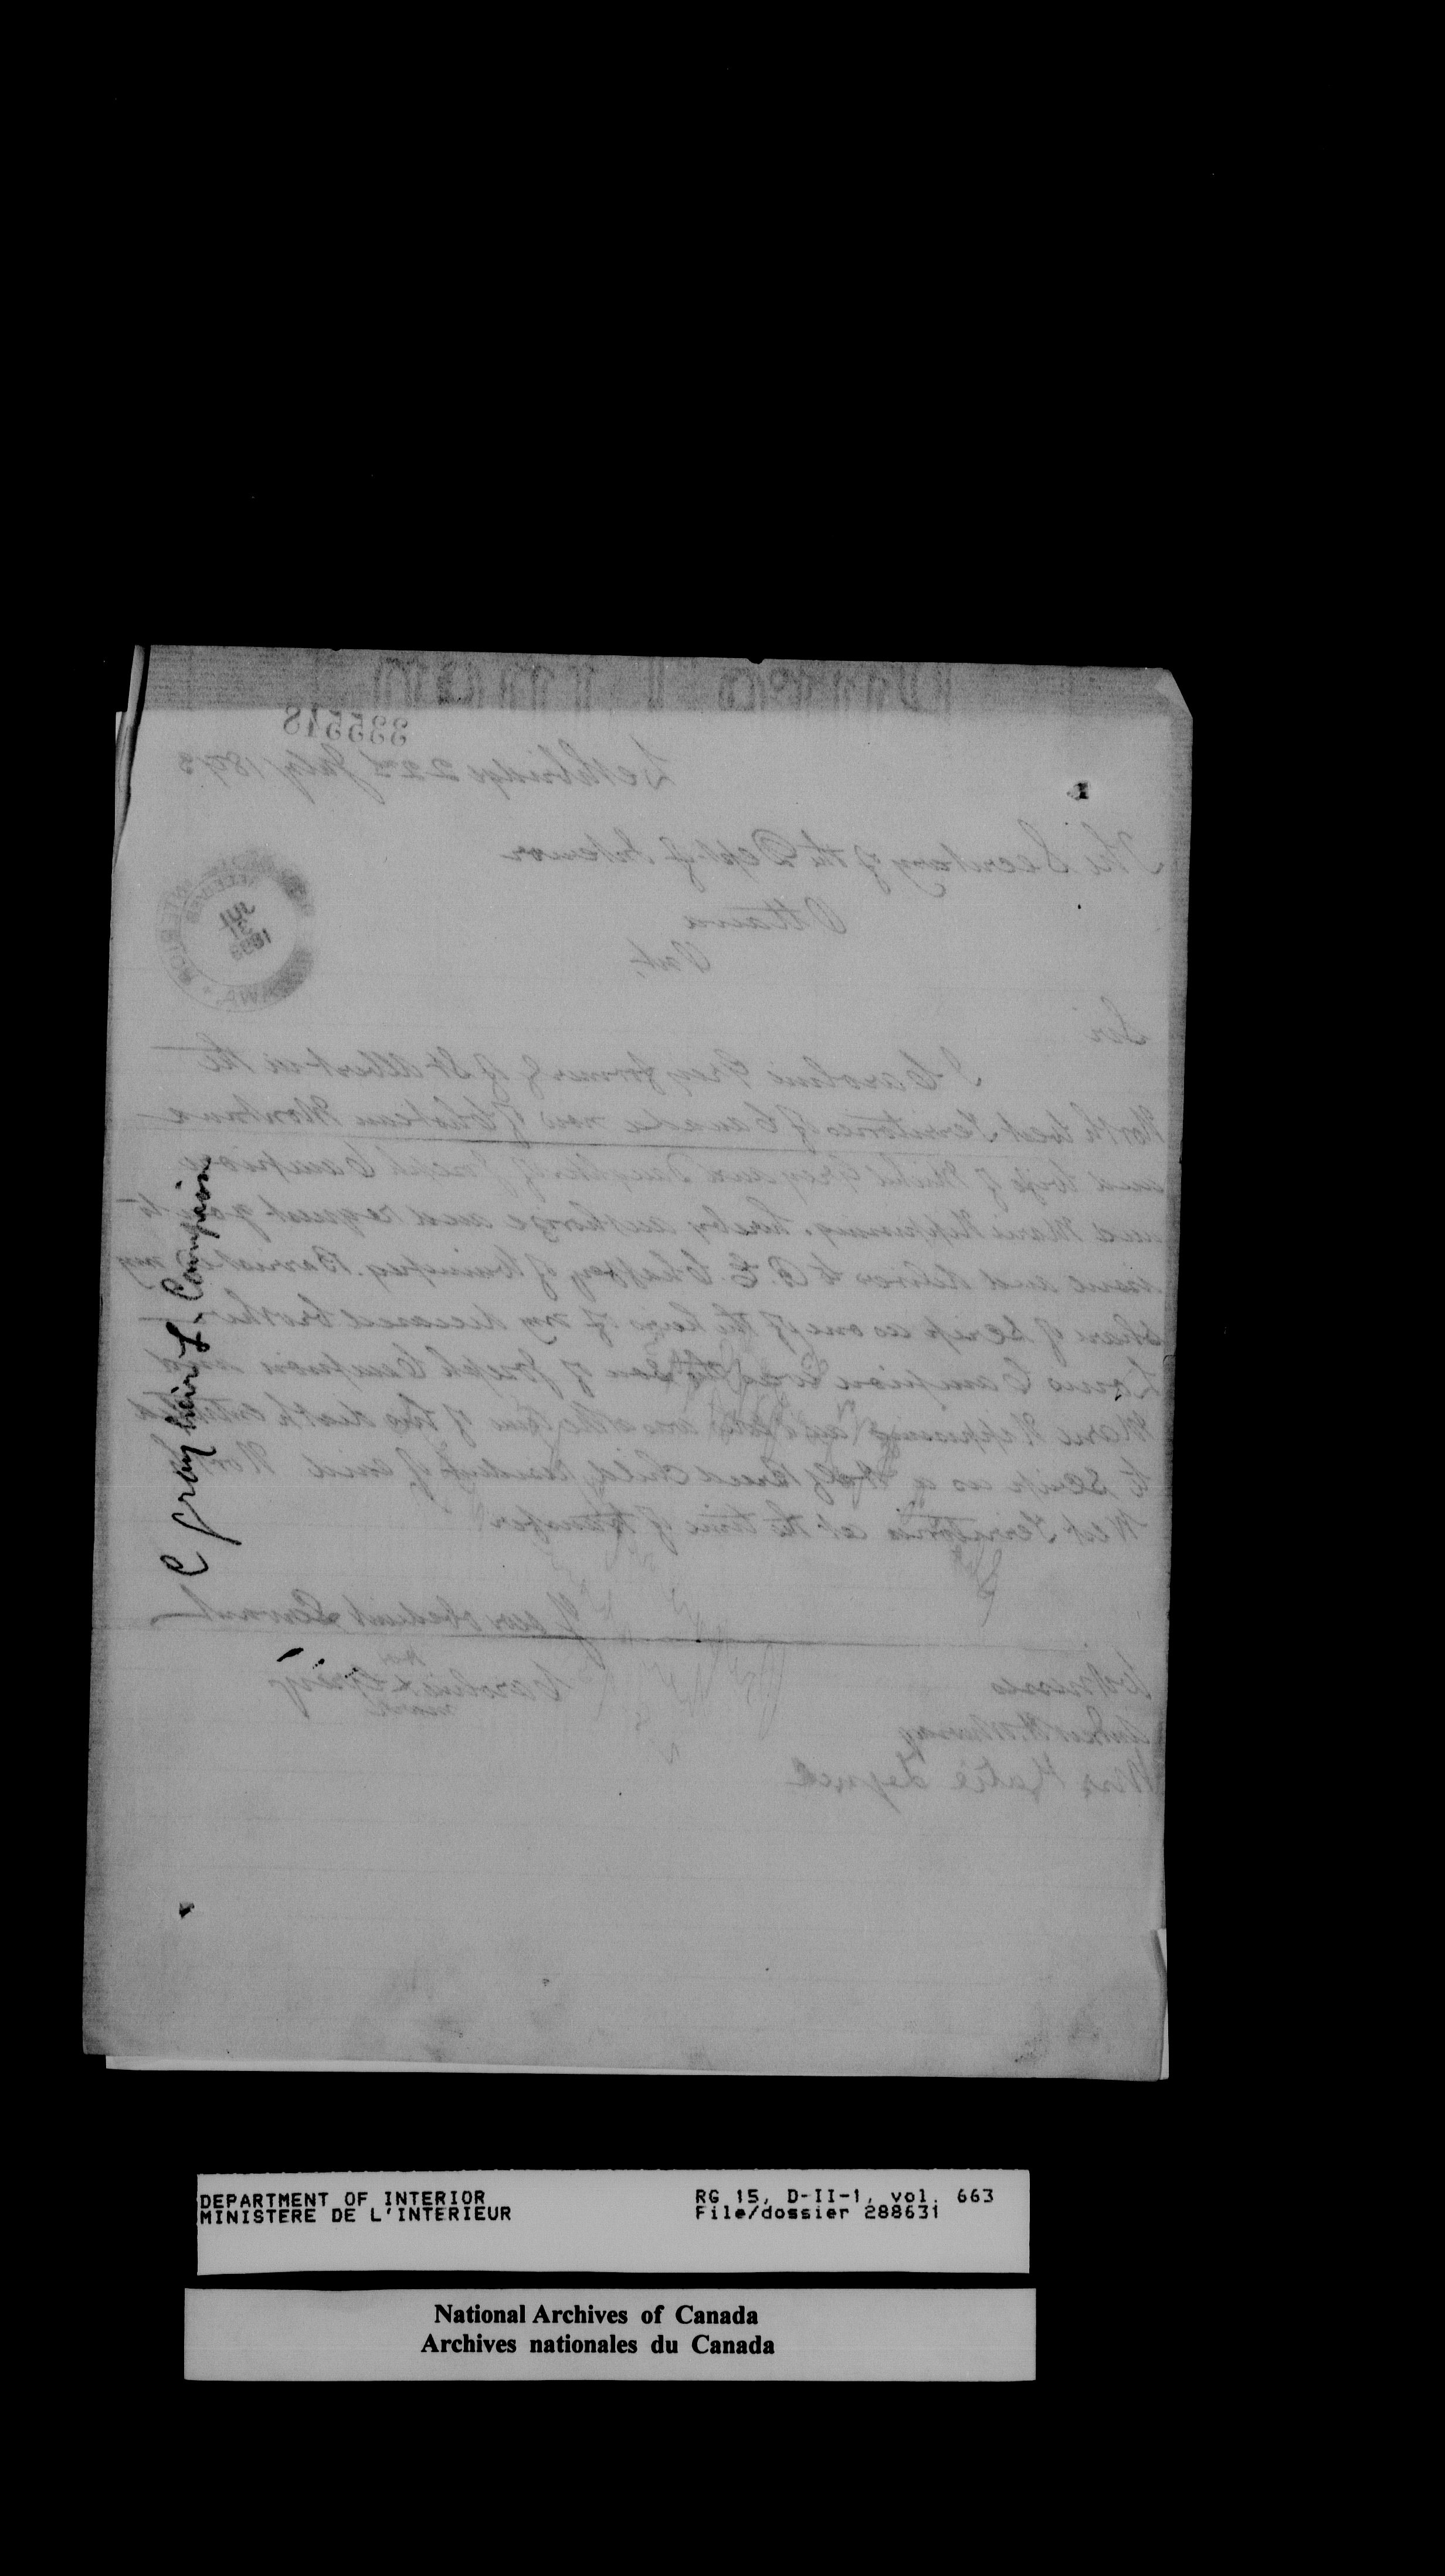 335518
Lethbridge 22nd July 1893
The Secretary of the Dept of Interior
Ottawa
Ont,
JUL
31
1893
Sir
I Caroline Grey formerly of St Albert in the
North West Territories of Canada now of Choteau Montana
and wife of Michel Grey and Daughter of Joseph Campion
and Marie Nippising, hereby authorize and request you to
issue and deliver to C. E. Chaffey of Winnipeg, Barrister my
share of scrip as one of the heirs of my deceased brother
Louis Campion son of Joseph Campion and
Marie Nippising and who was at the time of his death entitled
to scrip as a Half breed child resident of said North
West Territories at the time of transfer
Your obedient Servant
Witnesses
her
Caroline X Grey
mark
Murray
Mrs Katie
C Gray heir of L. Campion
DEPARTMENT OF INTERIOR RG 15, D-II-1, vol. 663
MINISTERE DE L'INTERIEUR File/dossier 288631
National Archives of Canada
Archives nationales du Canada